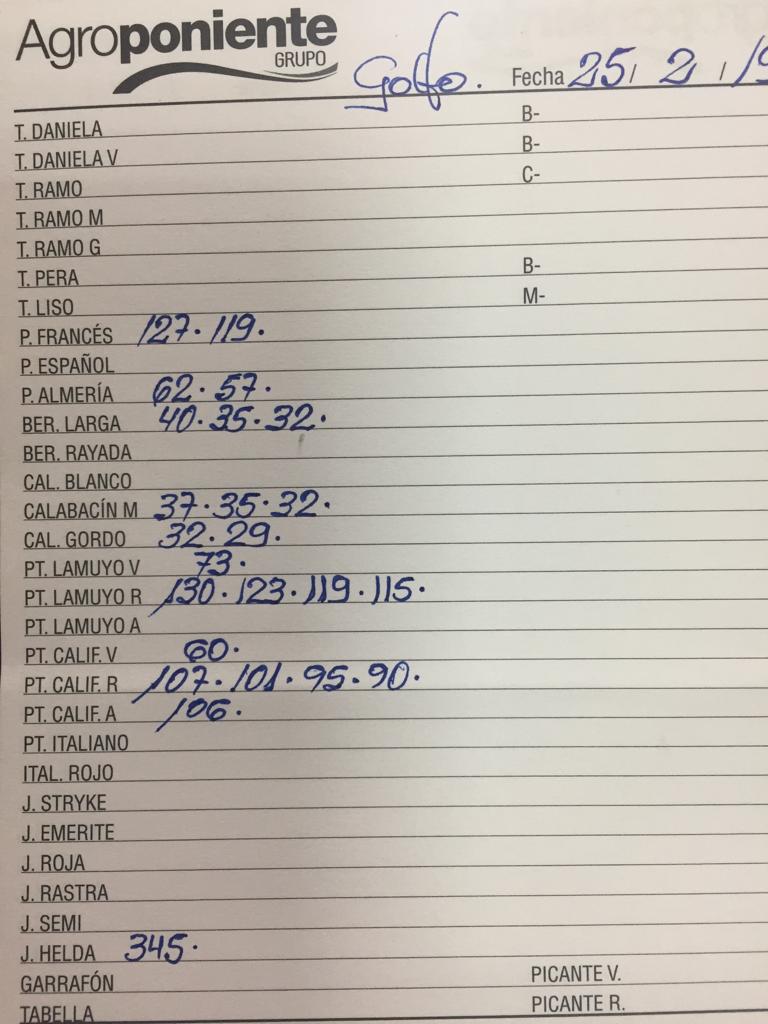 Agroponiente
GRUPO
Golfo. Fecha 25/ 2 /19
T. DANIELA B-
T. DANIELA V B-
T. RAMO C-
T. RAMO M
T. RAMO G
T. PERA B-
T. LISO M-
P. FRANCÉS 127. 119.
P. ESPAÑOL
P. ALMERÍA 62. 57.
BER. LARGA 40. 35. 32.
BER. RAYADA
CAL. BLANCO
CALABACÍN M 37. 35. 32.
CAL. GORDO 32. 29.
PT. LAMUYO V 73.
PT. LAMUYO R 130. 123. 119. 115.
PT. LAMUYO A
PT. CALIF. V 60.
PT. CALIF. R 107. 101. 95. 90.
PT. CALIF. A 106.
PT. ITALIANO
ITAL. ROJO
J. STRYKE
J. EMERITE
J. ROJA
J. RASTRA
J. SEMI
J. HELDA 345.
GARRAFÓN PICANTE V.
TABELLA PICANTE R.